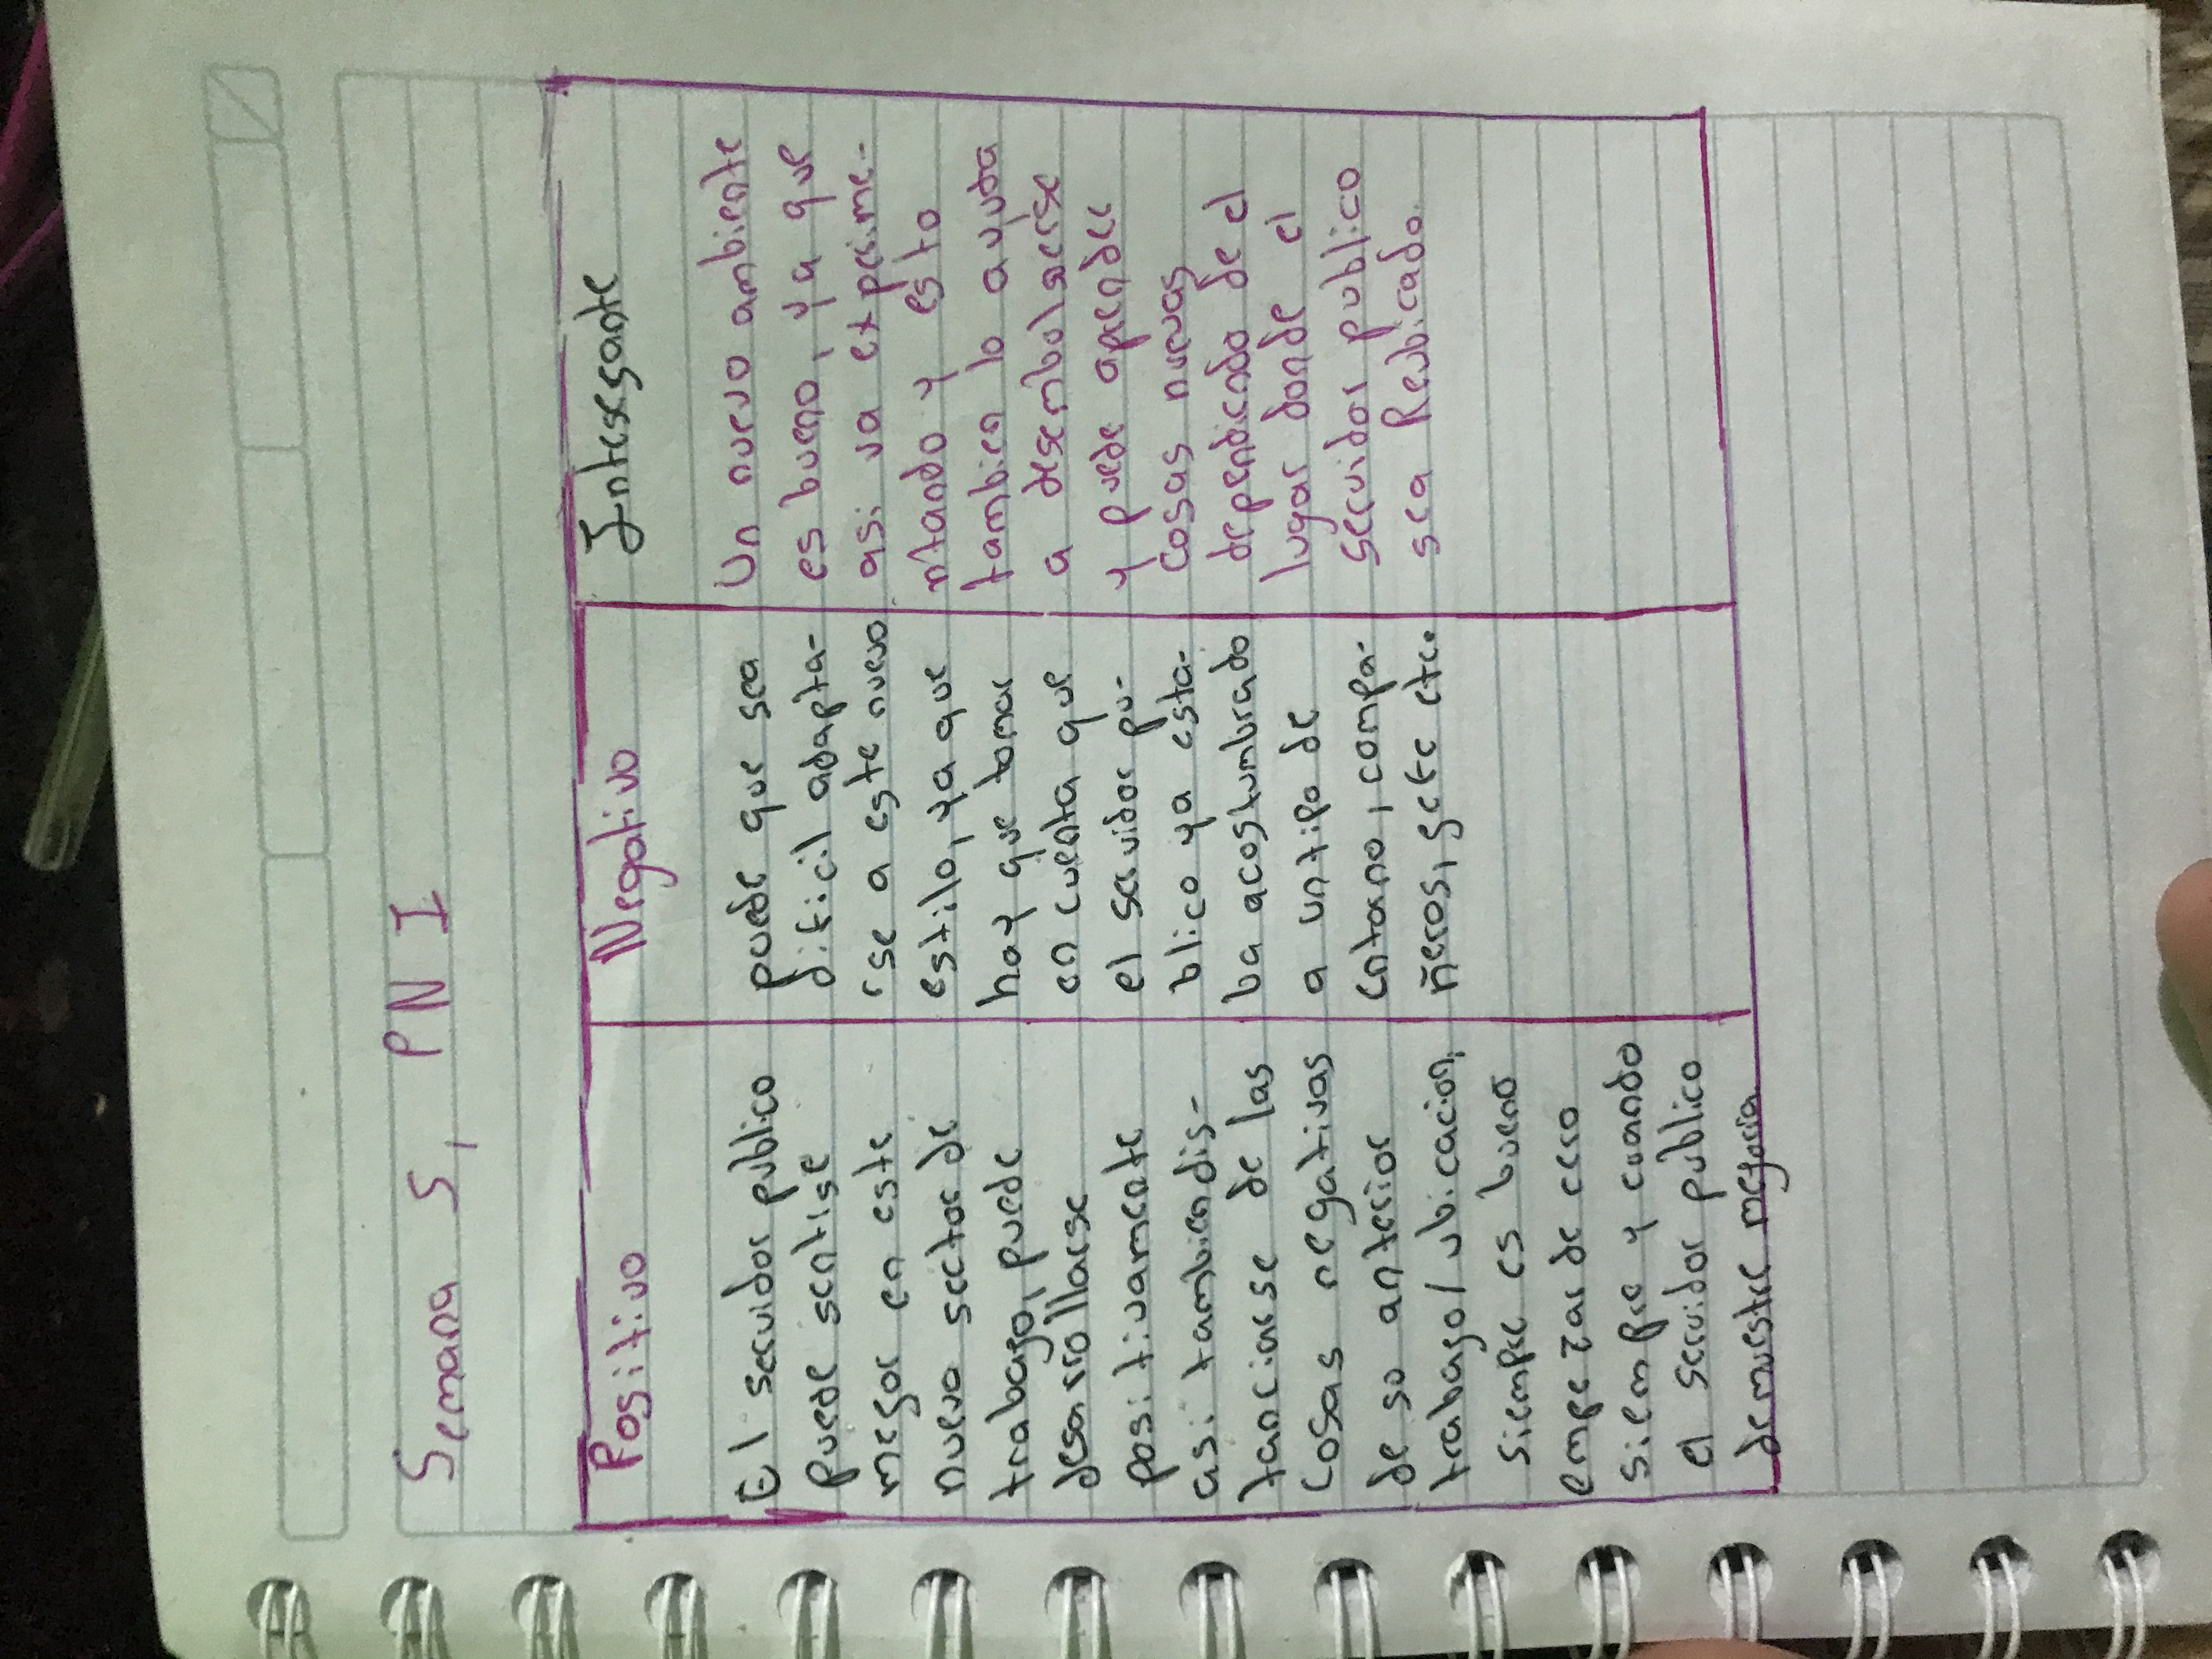 Semana 5, PNI
Positivo
El servidor publico
puede sentise
mejor en este
nuevo sector de
trabajo, puede
desarrollarse
positivamente
asi tambien dis-
tanciarse de las
cosas negativas
de so anterior
trabajo/ubicacion,
siempre es bueno
empezar de cero
siempre y cuando
el servidor publico
demuestre mejoria
Negativo
puede que sea
dificil adapta-
rse a este nuevo
estilo, ya que
hay que tomar
en cuenta que
el servidor pu-
blico ya esta-
ba acostumbrado
a un tipo de
entorno, compa-
ñeros, etc.
Interesante
Un nuevo ambiente
es bueno, ya que
asi va experime-
ntando y esto
tambien lo ayuda
a
y puede aprender
cosas nuevas
dependiendo de el
lugar donde el
servidor publico
sea Reubicado.